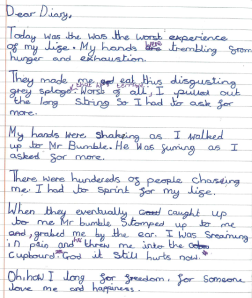 Dear Diary,
Today was the was the worst experience
of my life. My hands were trembling from
hunger and exhaustion.
They made me eat this disgusting
grey sploge. Worst of all, I pulled out
the long string so I had to ask for
more.
My hands were shakeing as I walked
up to Mr Bumble. He was fuming as I
asked for more.
There were hundreds of people chaseing
me. I had to sprint for my life.
When they eventually caught up
to me Mr bumble stomped up to me
and, grabed me by the ear. I was screaming
in pain and he threw me into the
cupbourd. God it still hurts now.
Oh, how I long for freedom. for someone
love me and happeness.